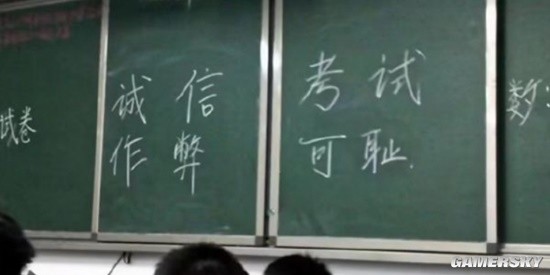 诚信 考试
作弊 可耻.
试卷
数:
GAMERSKY